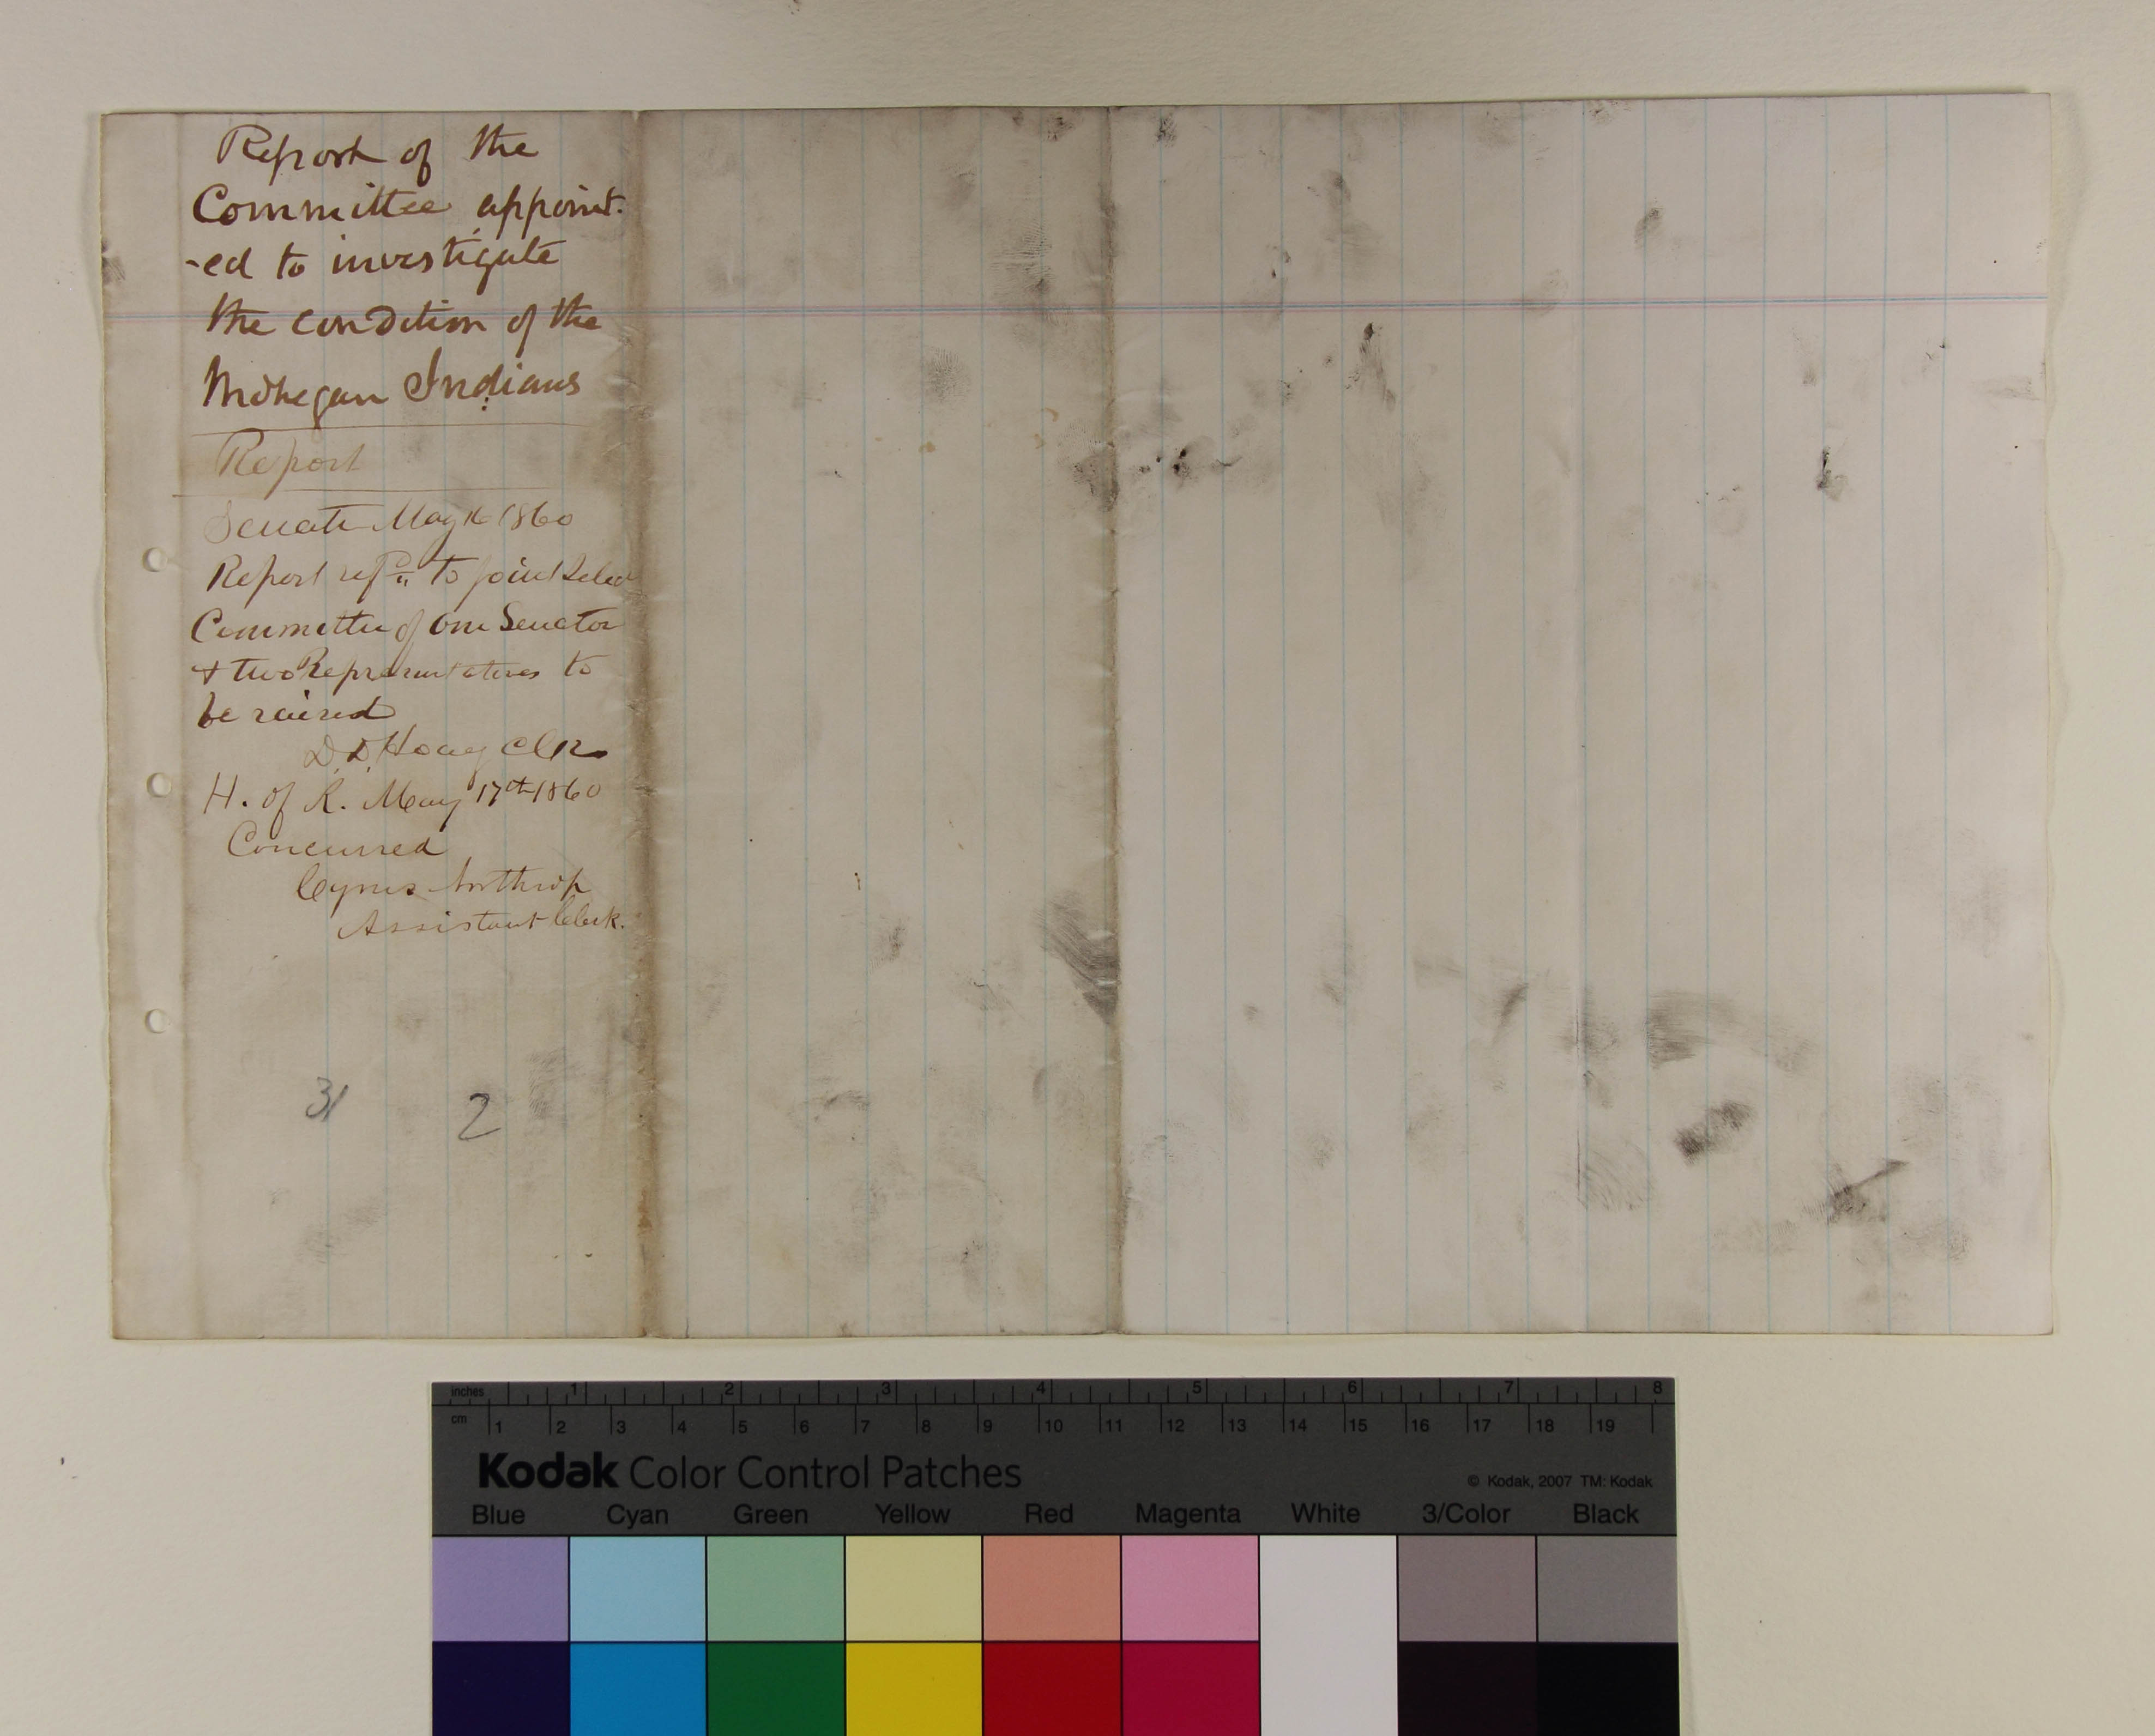 Report of the
Committee appoint-
-ed to investigate
the condition of the
Mohegan Indians
Report
Senate May 16 1860
Report refd. to joint Selec
Committee of One Senator
& two Representatives to
be raised
D. D. Hoag Clk
H. of R. May 17th 1860
Concurred
Cyrus Northrop
Assistant Clerk.
31 2
inches 1 2 3 4 5 6 7 8
cm 1 2 3 4 5 6 7 8 9 10 11 12 13 14 15 16 17 18 19
Kodak Color Control Patches
© Kodak, 2007 TM: Kodak
Blue Cyan Green Yellow Red Magenta White 3/Color Black